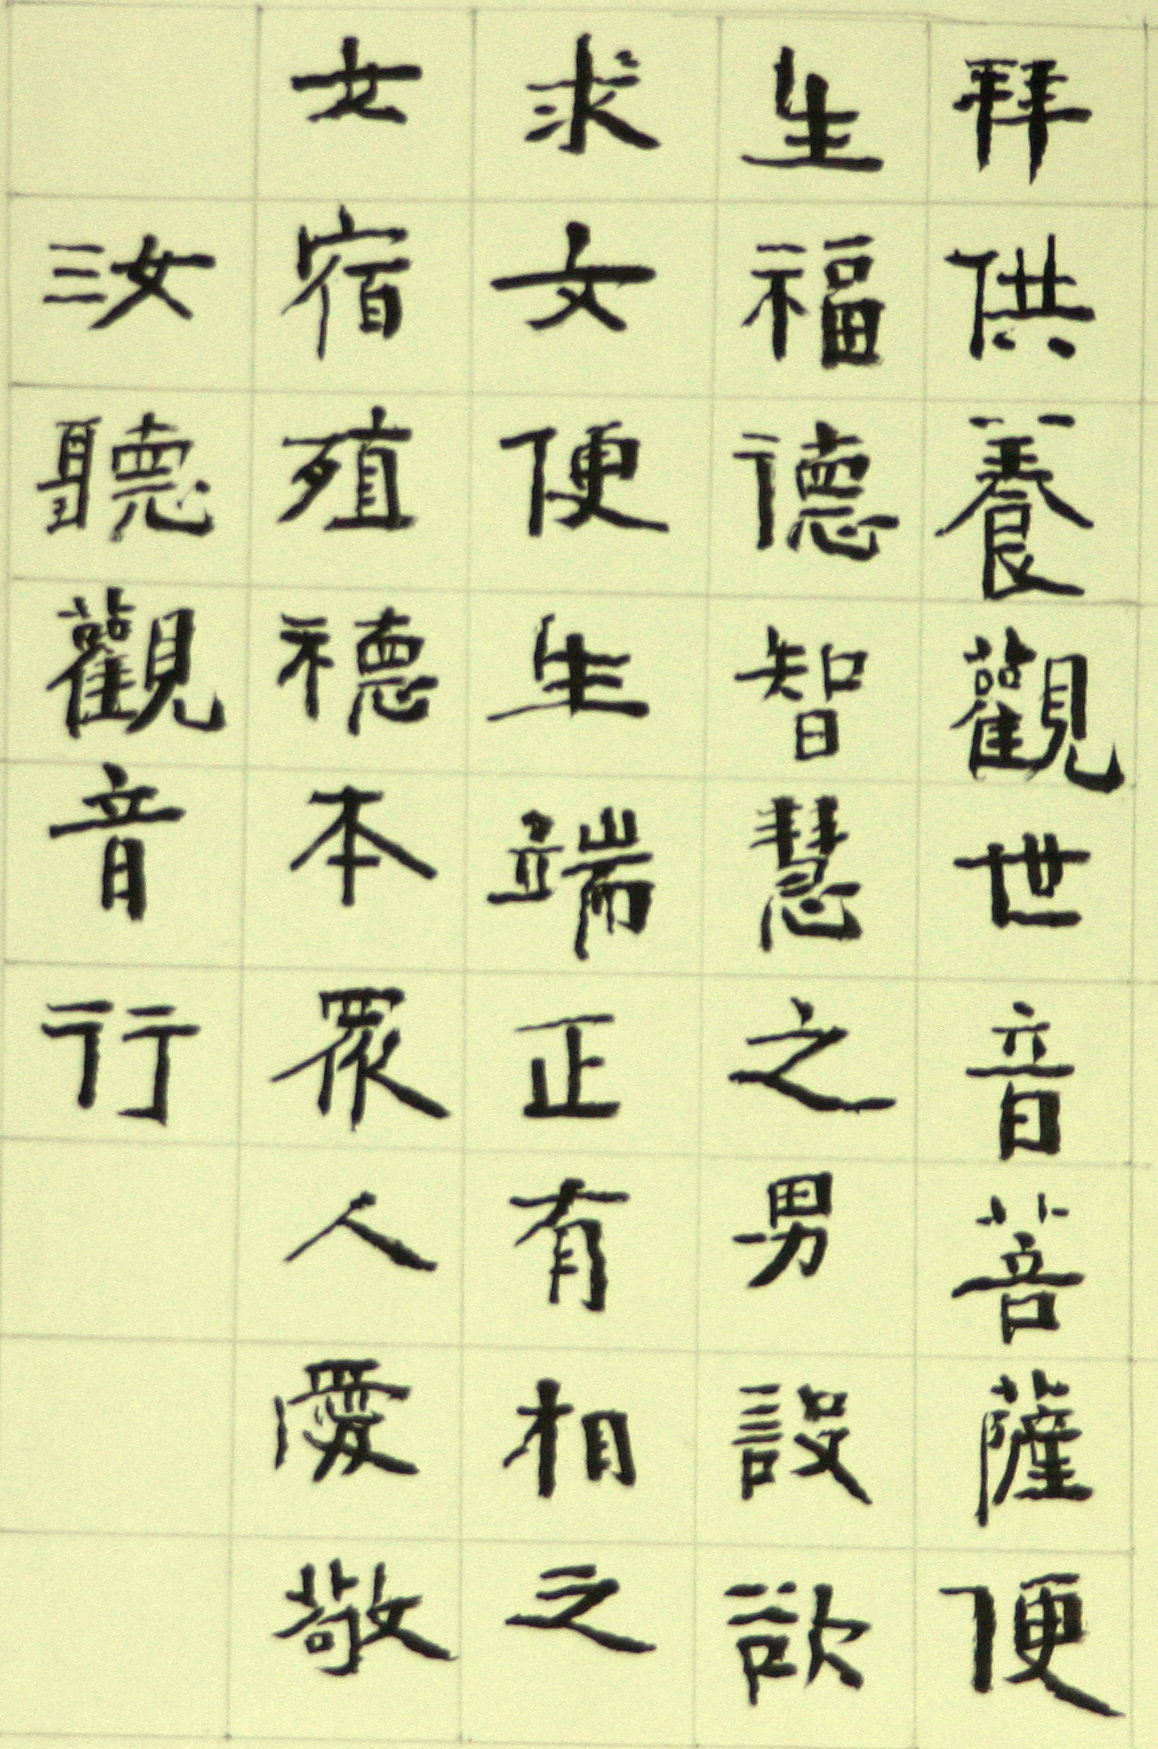 拜供養觀世音菩薩便
生福德智慧之男設欲
求女便生端正有相之
女宿殖德本眾人愛敬
汝聽觀音行